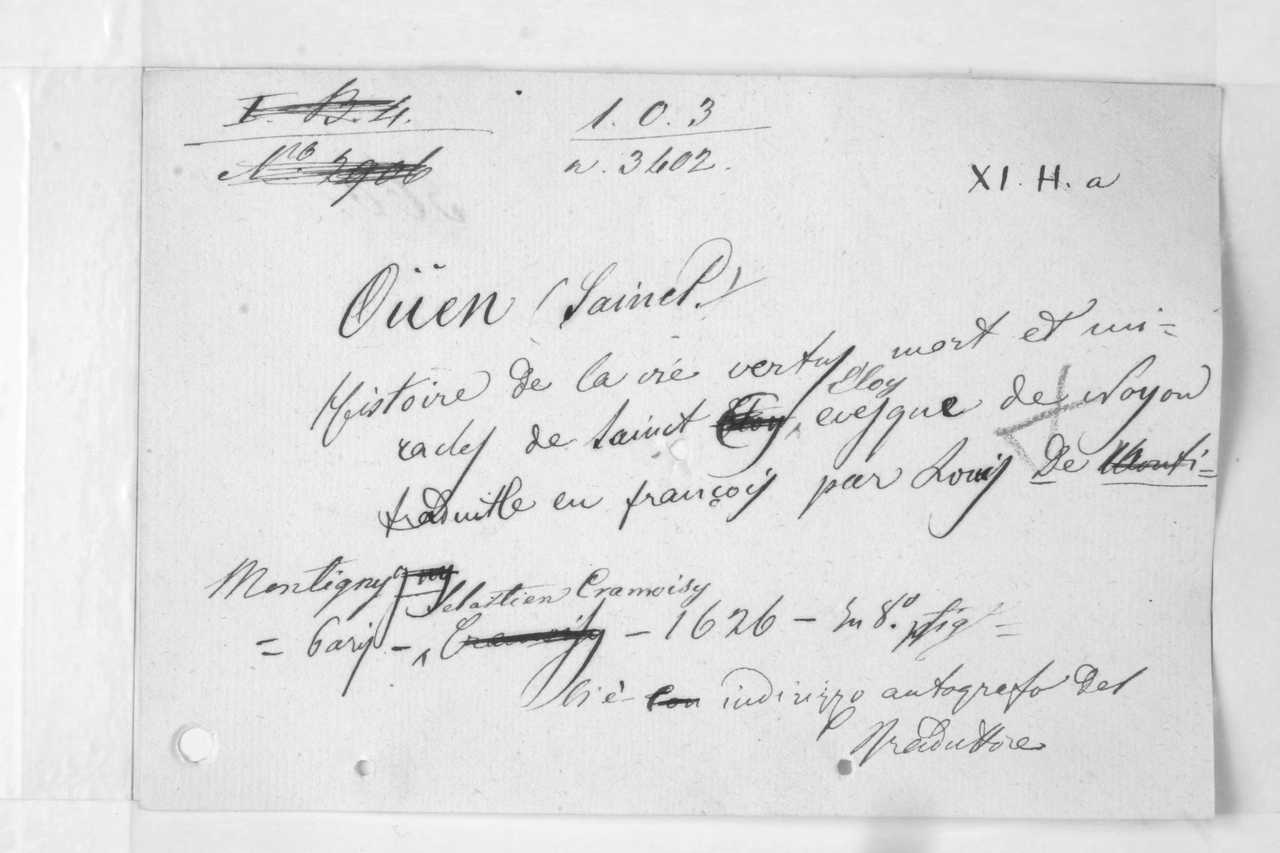 I. B. 4.
1. O. 3
Nro. 2906
n. 3402.
XI. H. a
Oüen (Sainct.)
Histoire de la vie vertus, mort et mi=
racles de Sainct Eloy Eloy, evesque de Noyon
traduitte en françois par Louis De Monti=
Montigny gny
Sebastien Cramoisy
= Paris - Cramoisy - 1626 - In 8.º fig =
Vi è con indirizzo autografo del
Traduttore